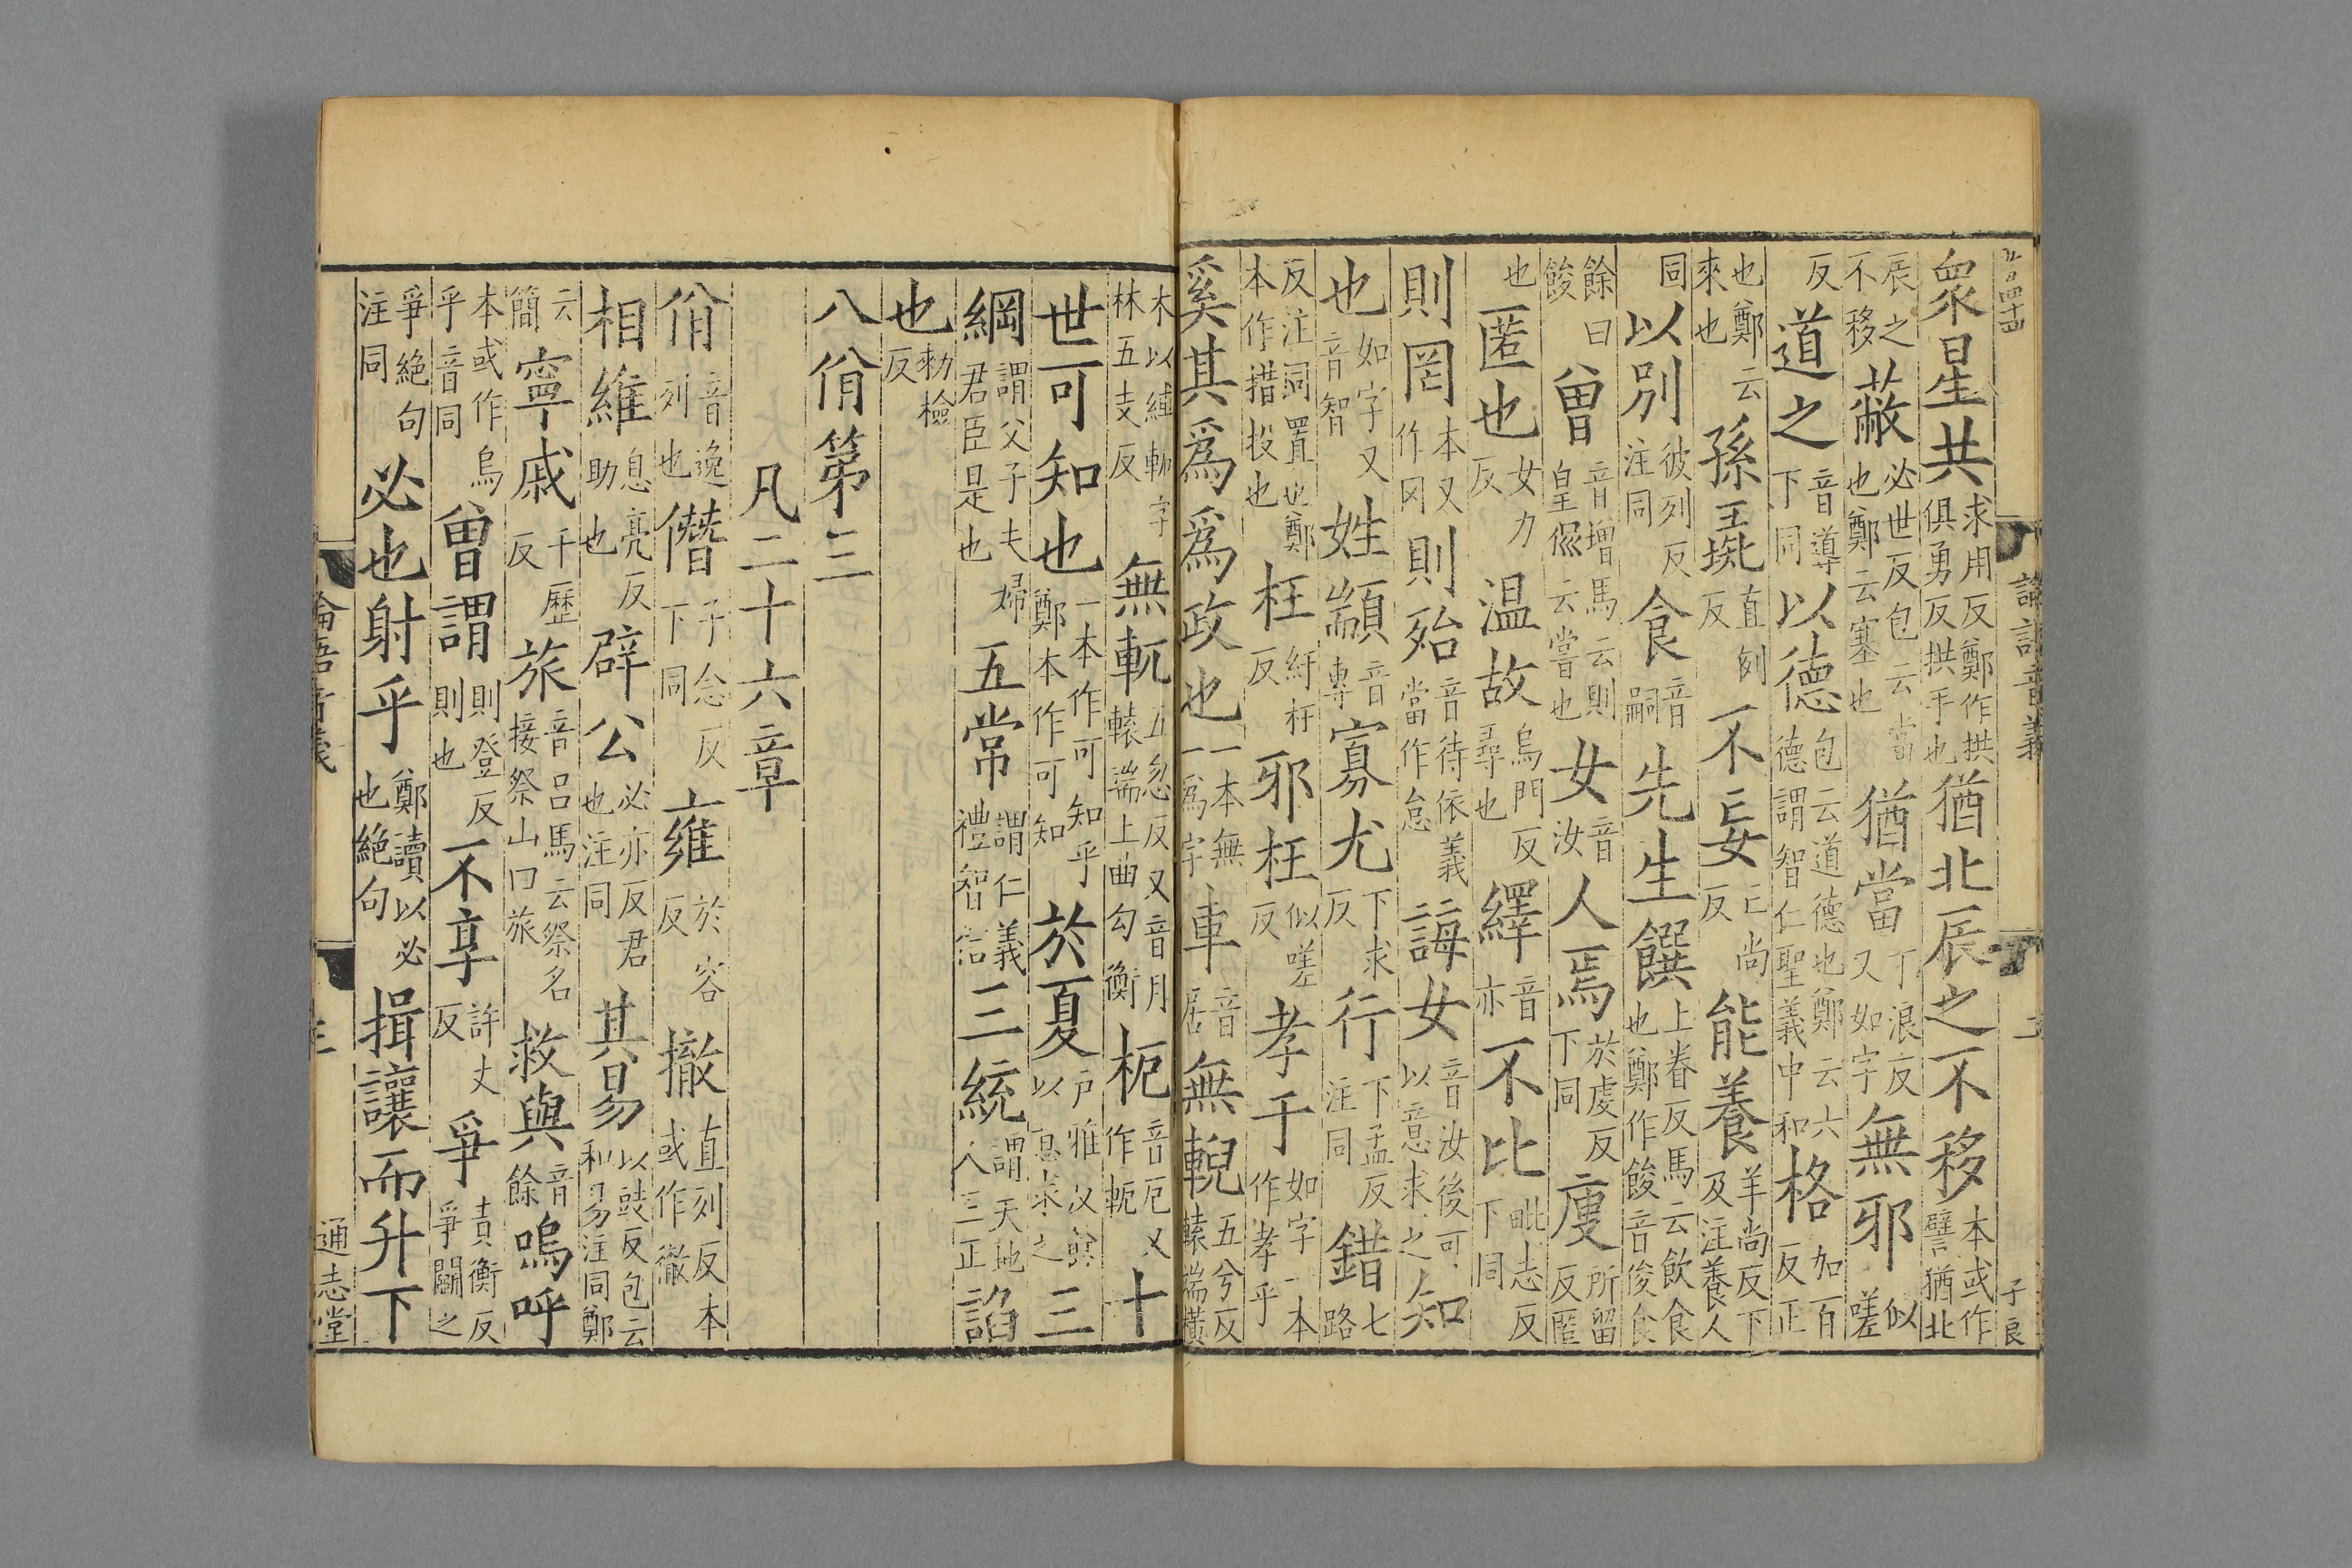 論語音義 二 子良
衆星共求用反鄭作拱俱勇反拱手也猶北辰之不移本或作譬猶北
辰之不移蔽必世反包云當也鄭云塞也猶當丁浪反又如字無邪似嗟
反道之音導下同以德包云道德也鄭云六德謂智仁聖義中和格加百反正
也鄭云來也孫彘直例反不妄亡尚反能養羊尚反下及注養人
同以別彼列反注同食音嗣先生饌上眷反馬云飲食也鄭作餕音俊食
餘曰餕曾音增馬云則皇侃云嘗也女音汝人焉於虔反下同廋所留反匿
也匿也女力反温故烏門反尋也繹音亦不比毗志反下同
則罔本又作冈則殆音待依義當作怠誨女音汝後可以意求之知
也如字又音智姓顓音專寡尤下求反行下孟反注同錯七路
反注同置也鄭本作措投也枉紆枉反邪枉似嗟反孝于如字一本作孝乎
奚其爲爲爲政也一本無一爲字車音居無輗五兮反轅端橫
木以縛軛字林五支反無軏五忽反又音月轅端上曲勾衡枙音厄又作軛十
世可知也一本作可知乎鄭本作可知於夏户雅反餘以意求之三
綱謂父子夫婦君臣是也五常謂仁義禮智信三統謂天地人三正諂
也勑檢反
八佾第三
凡二十六章
佾音逸列也僭子念反下同雍於容反撤直列反本或作徹
相維息亮反助也辟公必亦反君也注同其易以豉反包云和易注同鄭
云簡寧戚千歷反旅音吕馬云祭名接祭山曰旅救與音餘嗚呼
本或作烏乎音同曾謂則登反則也不享許丈反爭責衡反爭鬬之
爭絶句注同必也射乎鄭讀以必也絶句揖讓而升下
論語音義 三 通志堂